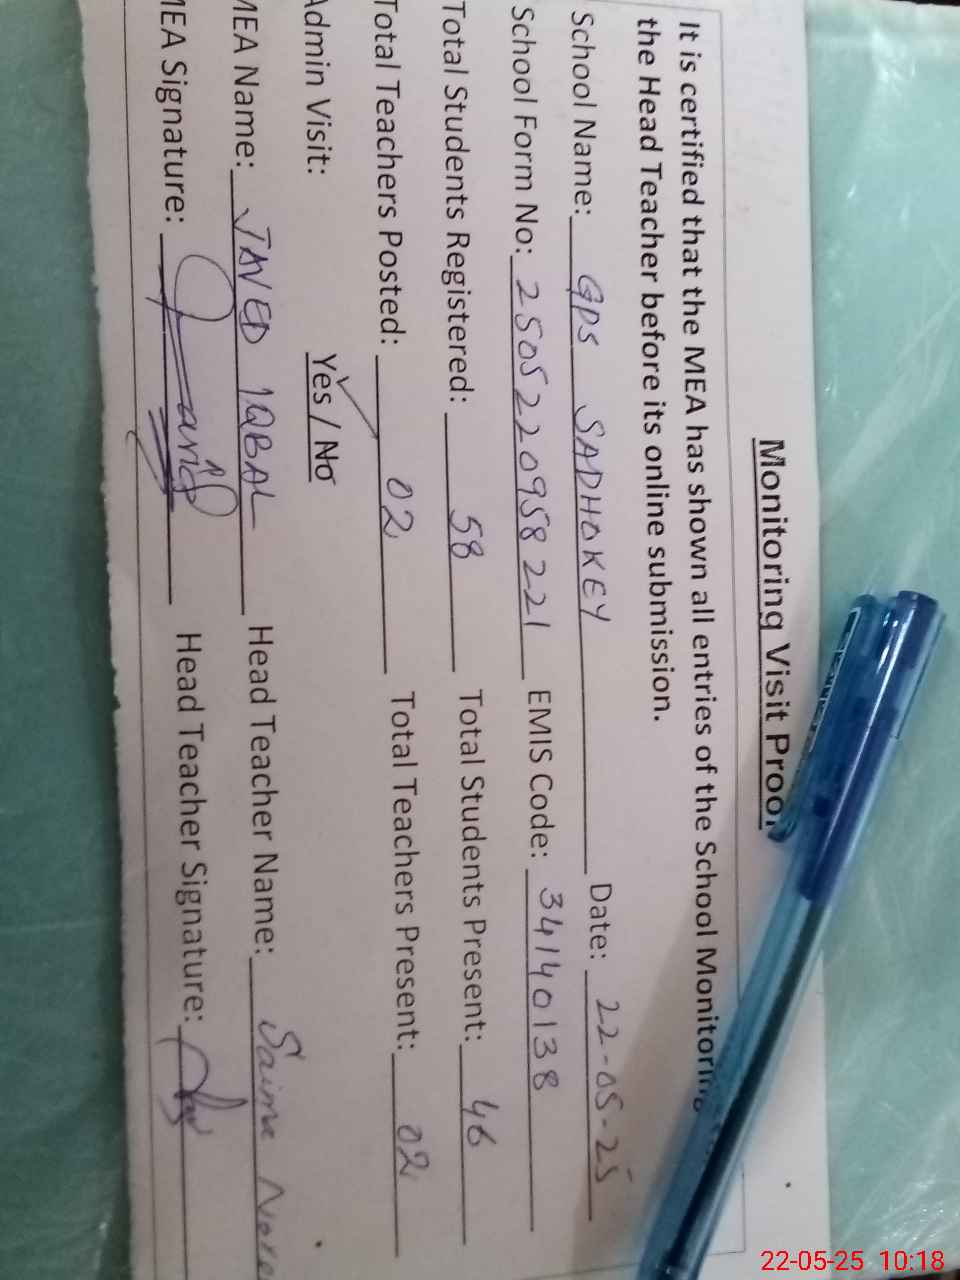 Monitoring Visit Proof
It is certified that the MEA has shown all entries of the School Monitoring
the Head Teacher before its online submission.
School Name: GPS SADHOKEY Date: 22-05-25
School Form No: 2505220958221 EMIS Code: 34140138
Total Students Registered: 58 Total Students Present: 46
Total Teachers Posted: 02 Total Teachers Present: 02
Admin Visit: Yes / No
MEA Name: JAVED IQBAL Head Teacher Name: Saima
MEA Signature: Head Teacher Signature:
22-05-25 10:18